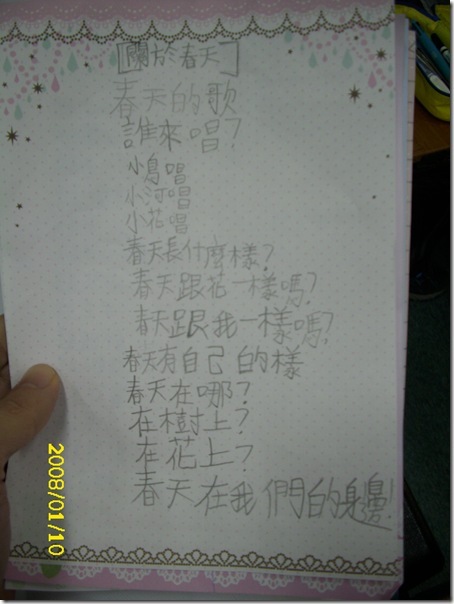 [關於春天]
春天的歌
誰來唱?
小鳥唱
小河唱
小花唱
春天長什麼樣?
春天跟花一樣嗎?
春天跟我一樣嗎?
春天有自己的樣
春天在哪?
在樹上?
在花上?
春天在我們的身邊!
2008/01/10